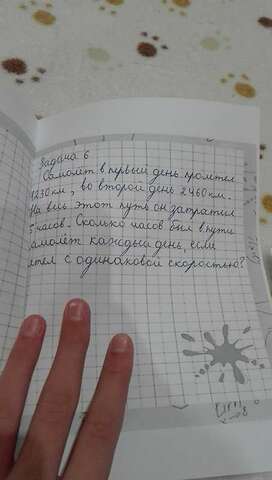 Задача 6
Самолёт в первый день пролетел
1230 км, во второй день 2460 км.
На весь этот путь он затратил
часов. Сколько часов был в пути
самолёт каждый день, если
летел с одинаковой скоростью?